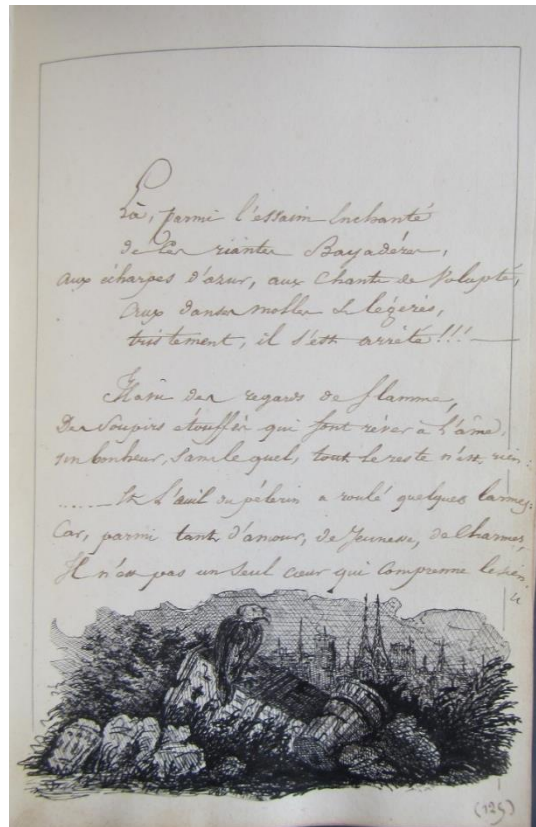 Là, parmi l'essaim Enchanté
de Ces riantes Bayadères,
aux écharpes d'azur, aux Chants de Volupté,
aux danses molles & légères,
tristement, il s'est arrêté!!!
Il a vu des regards de flamme,
Des Soupirs étouffés qui font rêver à l'âme,
un bonheur, sans le quel, tout le reste n'est rien:
...... Et L'œuil du pélerin a roulé quelques larmes:
Car, parmi tant d'amour, de Jeunesse, de Charmes,
Il n'est pas un Seul cœur qui Comprenne le sien.
(125)